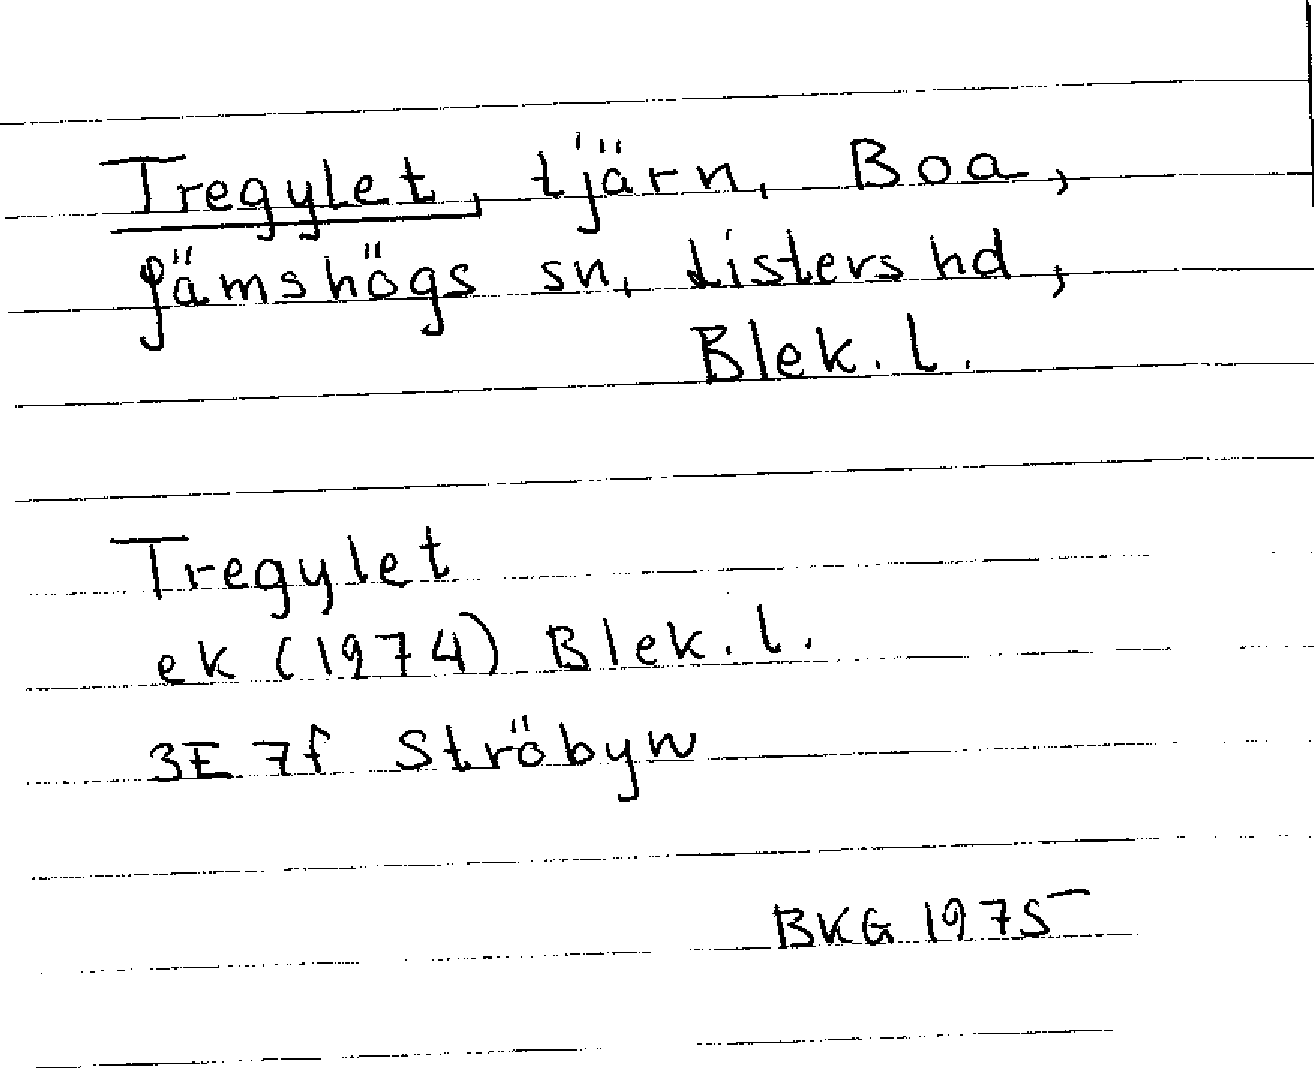 Tregylet, tjärn, Boa,
Jämshögs sn, Listers hd,
Blek. l.
Tregylet
ek (1974) Blek. l.
3E 7f Ströbyn
BKG 1975